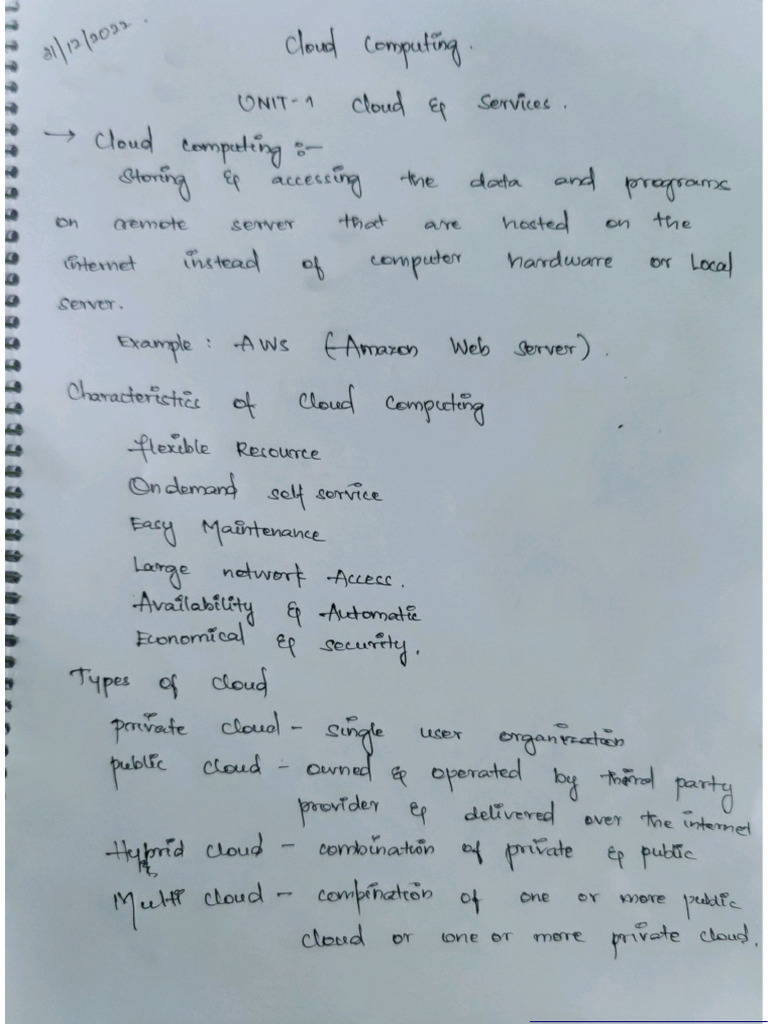 21/12/2022.
Cloud Computing.
UNIT-1 Cloud & Services.
→ Cloud computing :-
Storing & accessing the data and programs
on remote server that are hosted on the
internet instead of computer hardware or Local
server.
Example : AWS (Amazon Web Server).
Characteristics of Cloud Computing
flexible Resource
On demand self service
Easy Maintenance
Large network Access.
Availability & Automatic
Economical & security.
Types of cloud
private cloud - single user organization
public cloud - owned & operated by third party
provider & delivered over the internet
Hybrid cloud - combination of private & public
Multi cloud - combination of one or more public
cloud or one or more private cloud.